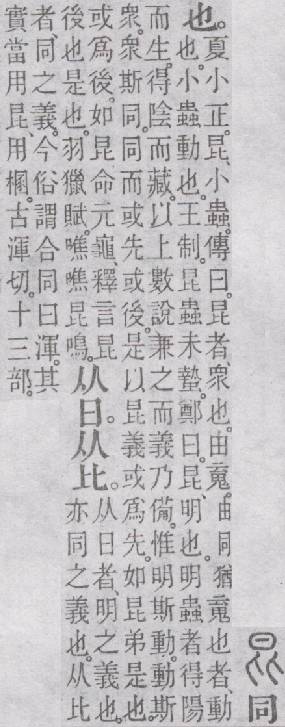 昆 同
也。夏小正。昆、小蟲。傳曰。昆者、衆也。由䰟。由同猶䰟也者、動
也。小蟲動也。王制。昆蟲未蟄。鄭曰。昆、明也。明蟲者得陽
而生。得陰而藏。以上數說兼之而義乃備。惟明斯動。動斯
衆。衆斯同。同而或先或後。是以昆義或爲先。如昆弟是也。
或爲後。如昆命元龜、釋言昆
後也是也。羽獵賦。噍噍昆鳴。
从日。从比。
从日者、明之義也。
亦同之義也。从比
者、同之義。今俗謂合同曰渾。其
實當用昆、用棞。古渾切。十三部。